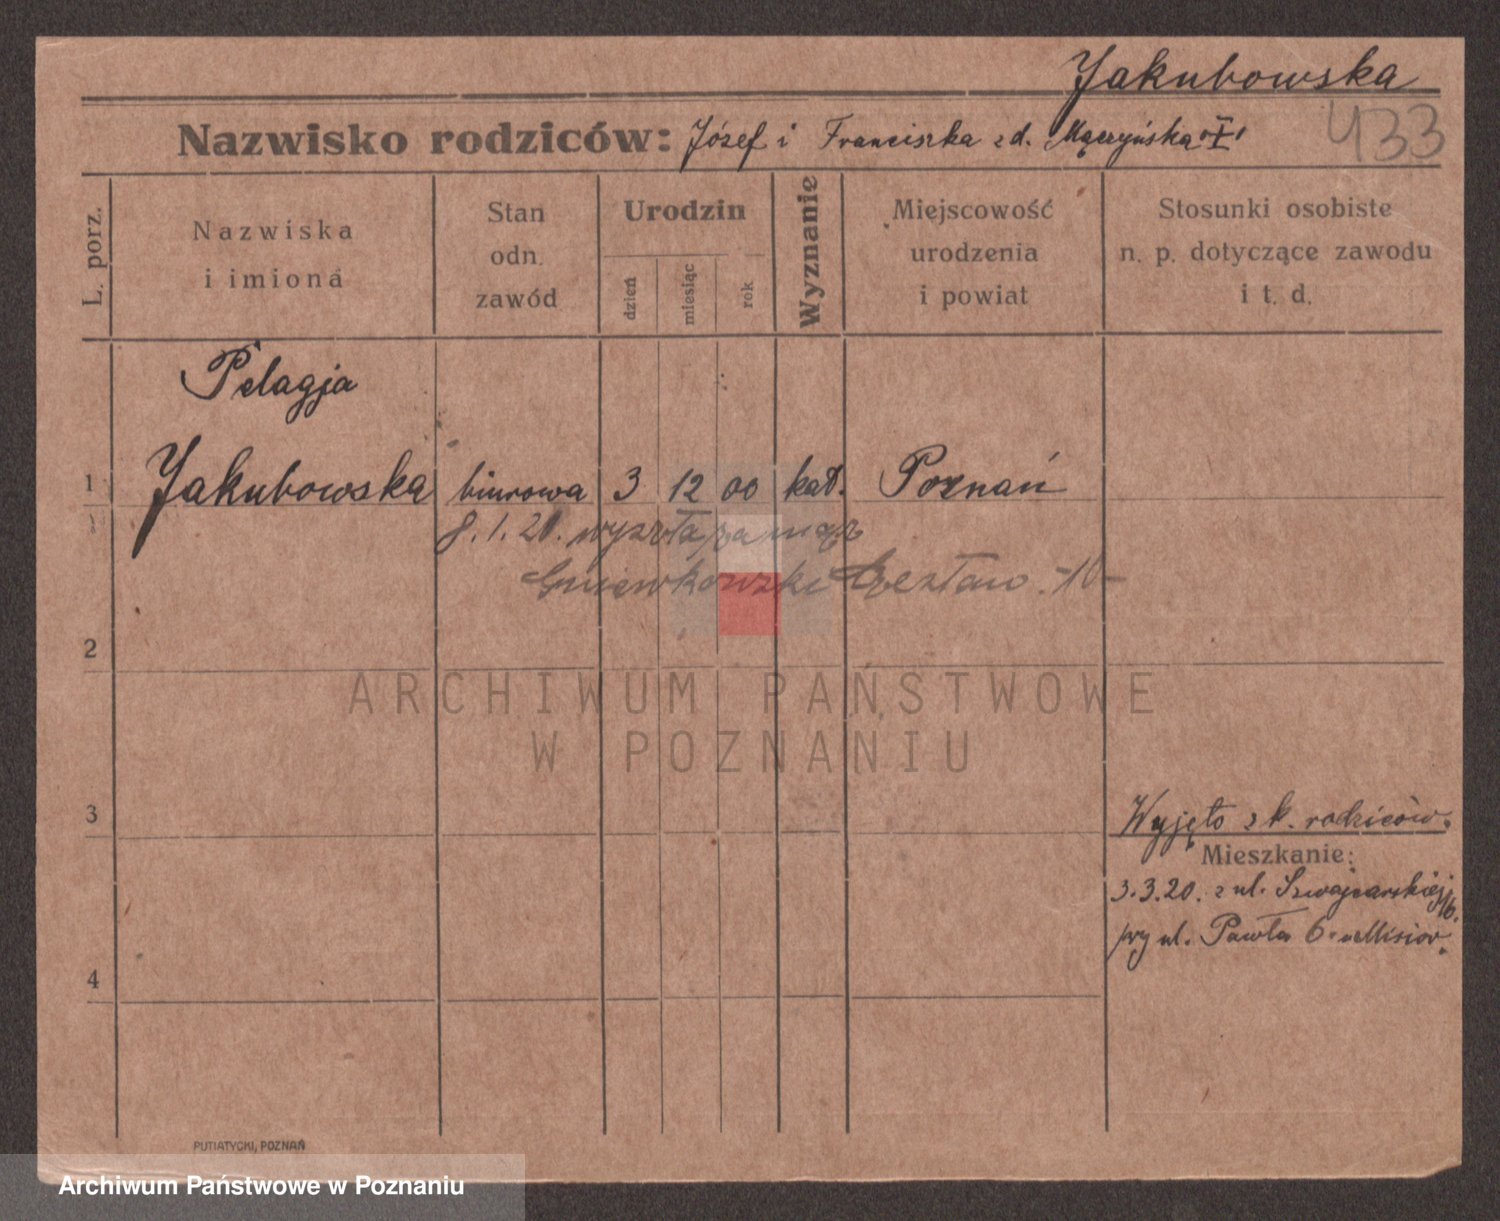 Jakubowska
433
Nazwisko rodziców: Józef i Franciszka z d. Mączyńska "I"
L. porz.
Nazwiska
i imiona
Stan
odn.
zawód
Urodzin
dzień
miesiąc
rok
Wyznanie
Miejscowość
urodzenia
i powiat
Stosunki osobiste
n. p. dotyczące zawodu
i t. d.
Pelagja
1 Jakubowska biurowa 3 12 00 kat. Poznań
8.1.20. wyszła za mąż
Gniewkowski Czesław -10-
2
ARCHIWUM PAŃSTWOWE
W POZNANIU
3
Wyjęto z k. rodziców.
Mieszkanie:
3.3.20. z ul. Szwajcarskiej 16.
przy ul. Pawła 6. u Misior.
4
PUTIATYCKI, POZNAŃ
Archiwum Państwowe w Poznaniu